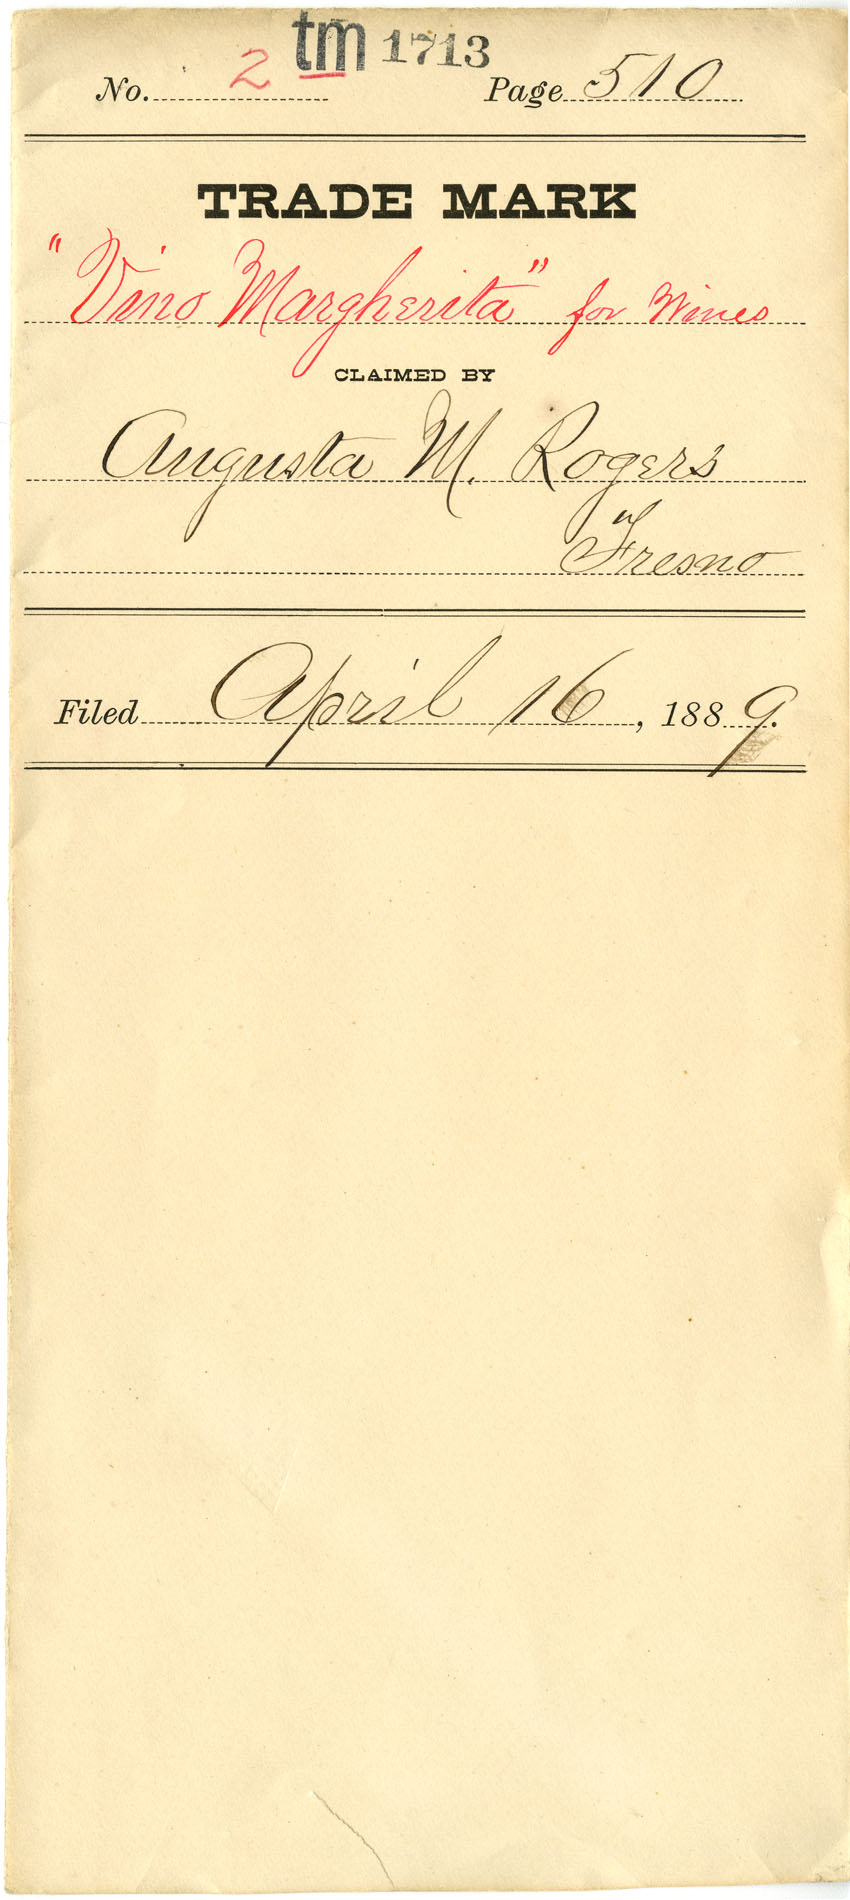 tm 1713
No. 2 Page 510
TRADE MARK
"Vino Margherita" for Wines
CLAIMED BY
Augusta M. Rogers
Fresno
Filed April 16, 1889.